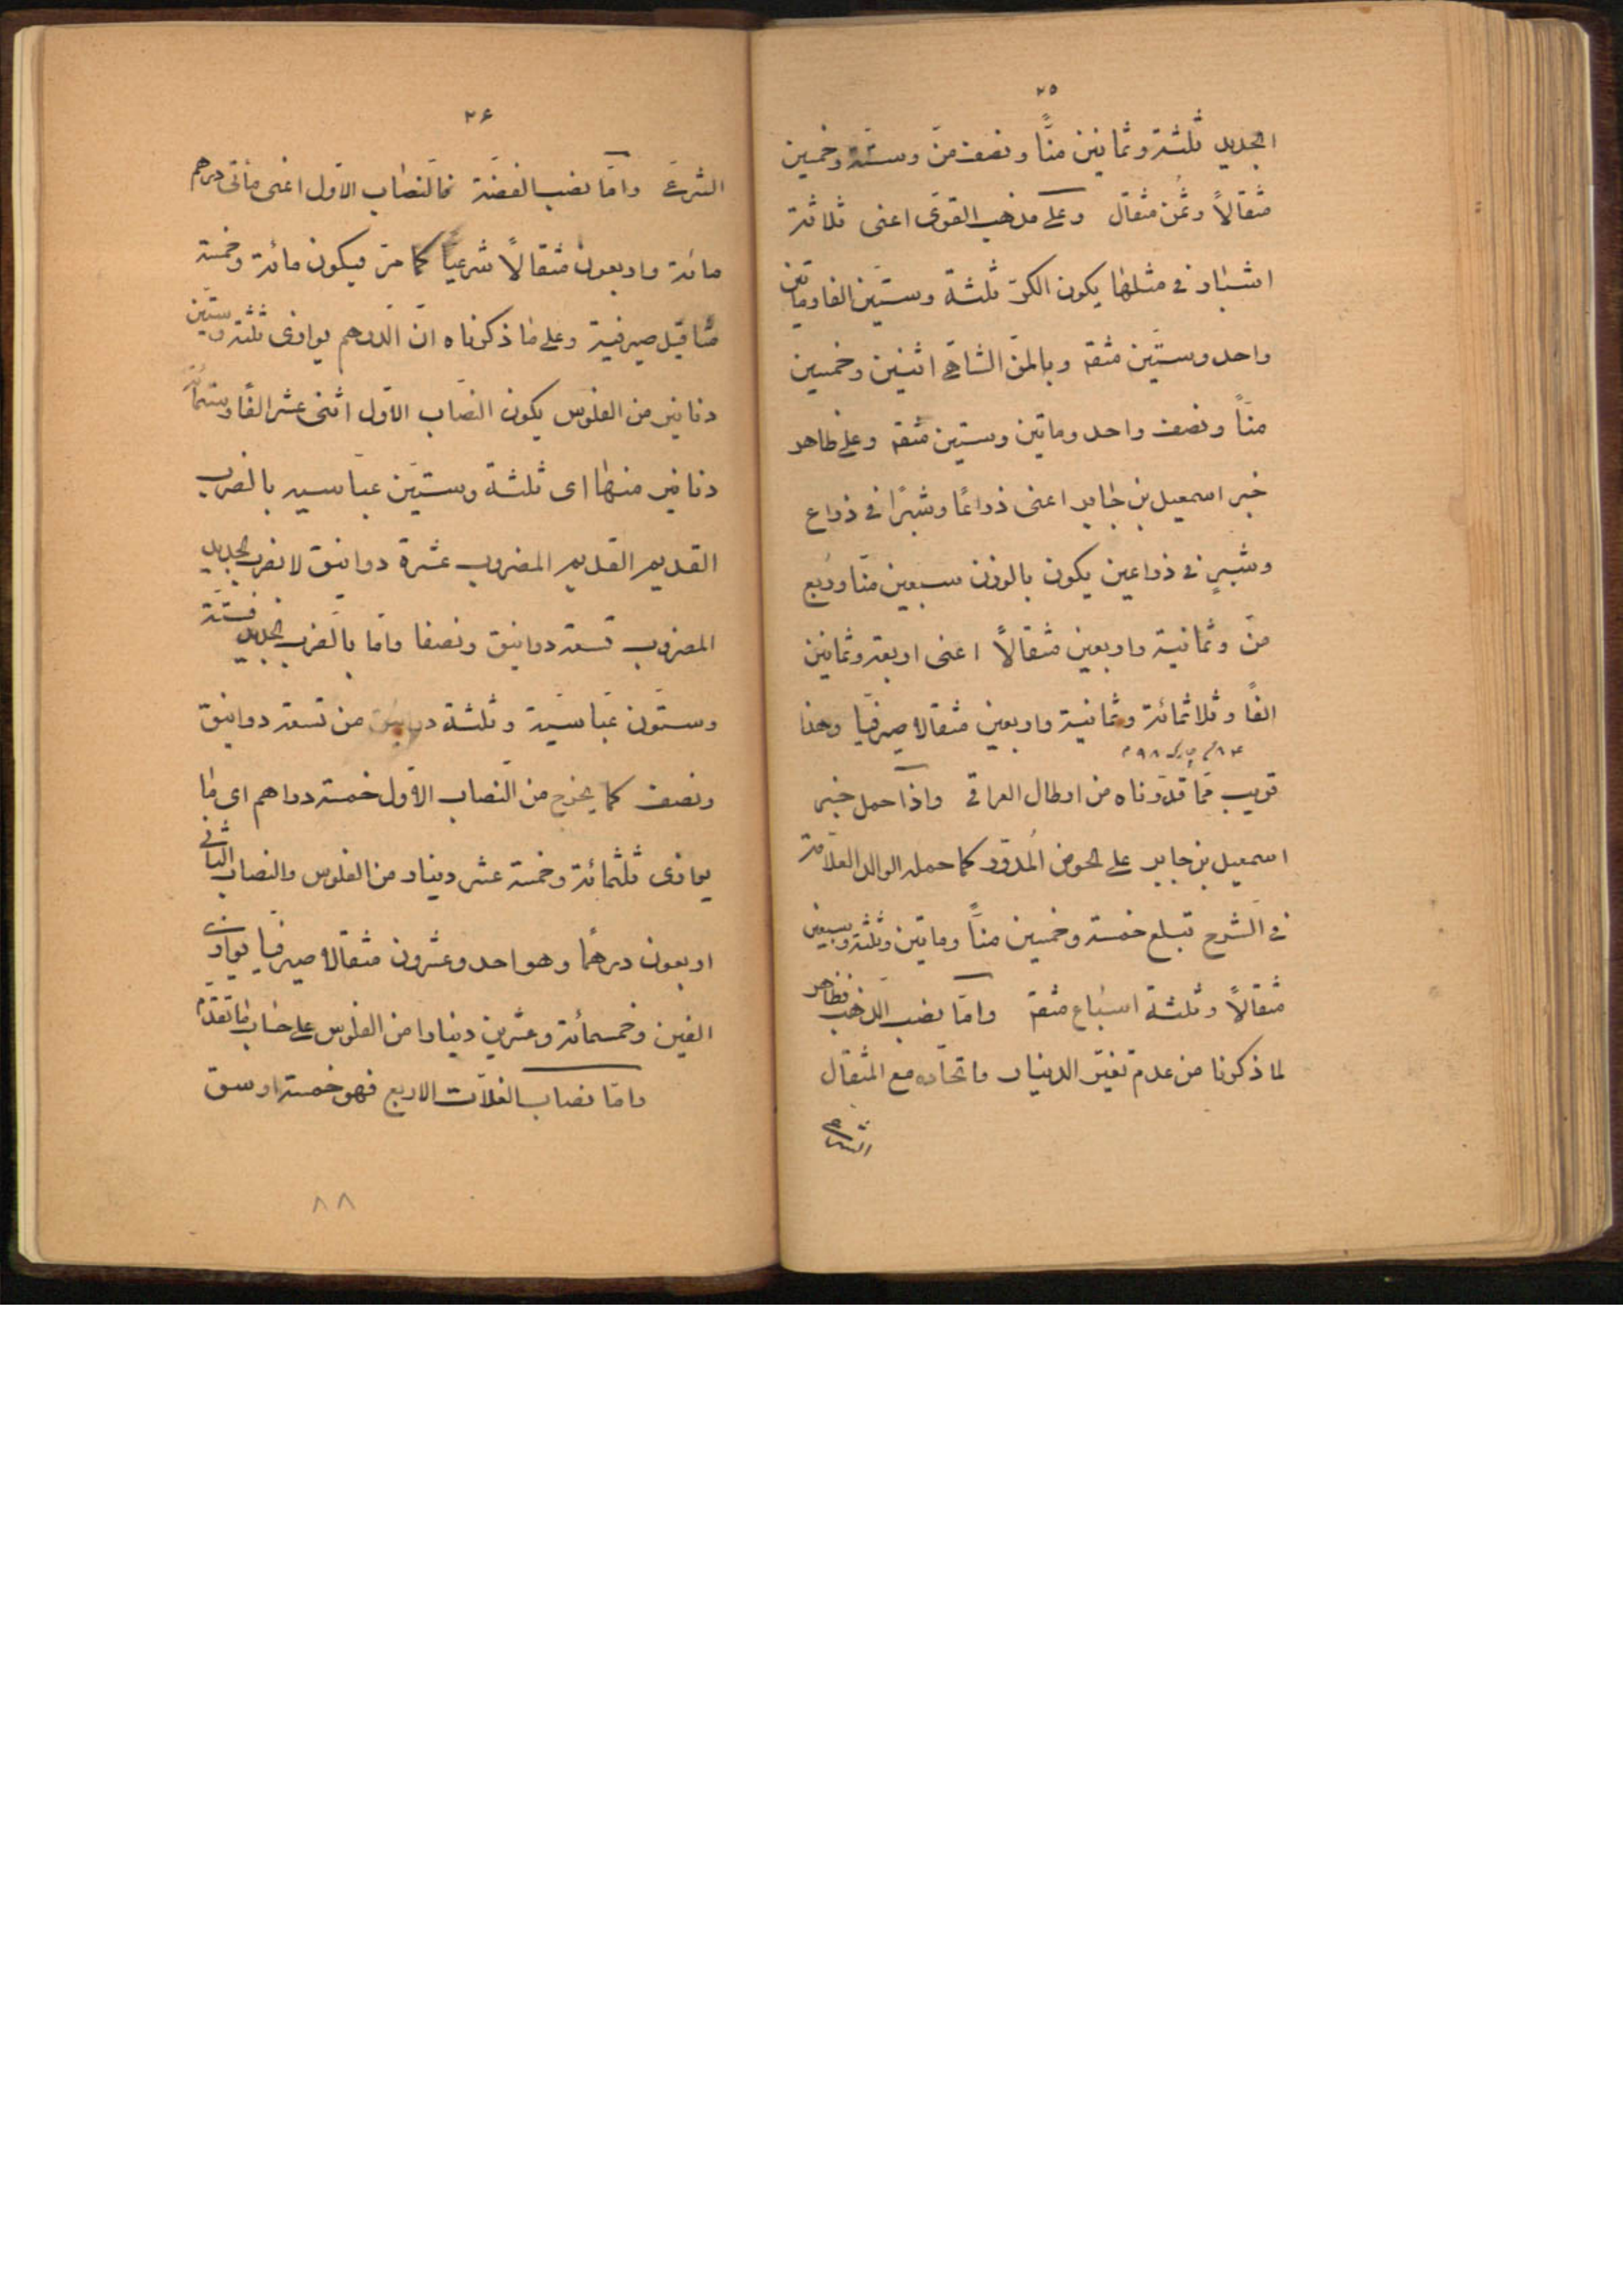 ٢٥
الجديد ثلثة وثمانين منًّا ونصف منّ وستة وخمسين
مثقالاً وثمن مثقال وعلى مذهب القوى اعنى ثلاثة
اشبار فى مثلها يكون الكرّ ثلثة وستين الفا وماتين
واحد وستين مثقه وبالمنّ الشاهى اثنين وخمسين
منّاً ونصف واحد وماتين وستين مثقه وعلى ظاهر
خبر اسمعيل بن جابر اعنى ذراعًا وشبرًا فى ذراع
وشبرٍ فى ذراعين يكون بالوزن سبعين منّا وربع
منّ وثمانية واربعين مثقالاً اعنى اربعة وثمانين
الفاً وثلاثمائة وثمانية واربعين مثقالا صيرفيا وهذا
قريب مما قدّرناه من ارطال العراقى واذا حمل خبر
اسمعيل بن جابر على الحوض المُدوّر كما حمله الوالد العلاّمة
فى الشرح تبلغ خمسة وخمسين منّاً وماتين وثلثة وسبعين
مثقالاً وثلثة اسباع مثقه وامّا نصب الذهب فظاهر
لما ذكرنا من عدم تغيّر الدينار واتحاده مع المثقال
٢۶
الشرعى وامّا نصب الفضّة فالنصاب الاوّل اعنى مأتى درهم
مائة واربعون مثقالاً شرعيّاً كما مرّ فيكون مائة وخمسة
مثاقيل صيرفية وعلى ما ذكرناه انّ الدرهم يوازى ثلثة وستين
دنانير من الفلوس يكون النصاب الاوّل اثنى عشر الفًا وستمائة
دنانير منها اى ثلثة وستين عباسيه بالضرب
القديم القديم المضروب عشرة دوانيق لا بضرب الجديد
المضروب تسعة دوانيق ونصفا وامّا بالضرب الجديد فستة
وستون عباسيّة وثلثة دوانيق من تسعة دوانيق
ونصف كما يخرج من النصاب الاوّل خمسة دراهم اى ما
يوازى ثلثمائة وخمسة عشر دينار من الفلوس والنصاب الثانى
اربعون درهمًا وهو احد وعشرون مثقالا صيرفيا يوازى
الفين وخمسمائة وعشرين دينارا من الفلوس على حساب ما تقدم
وامّا نصاب الغلاّت الاربع فهو خمسة اوسق
٨٨